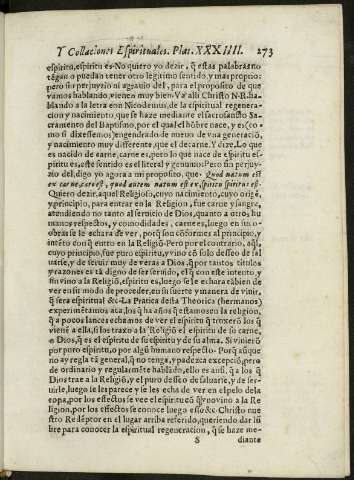 Y Collaciones Espirituales. Plat. XXXIIII. 273
espiritu, espiritu es. No quiero yo dezir, q̃ estas palabras no
tẽgan o puedan tener otro legitimo sentido, y mas proprio:
pero sin perjuyzio ni agrauio del, para el proposito de que
vamos hablando, vienen muy bien. Va alli Christo N.R. ha-
blando a la letra con Nicodemus, de la espiritual regenera-
cion y nacimiento, que se haze mediante el sacrosancto Sa-
cramento del Baptismo, por el qual el hõbre nace, y es (co-
mo si dixessemos) engendrado de nueuo de vna generaciõ,
y nacimiento muy differente, que el de carne. Y dize, Lo que
es nacido de carne, carne es, pero lo que nace de espiritu es-
piritu es, este sentido es el literal y genuino. Pero sin perjuy-
zio del, digo yo agora a mi proposito, que. Quod natum est
ex carne, caro est, quod autem natum est ex spiritu spiritus est.
Quiero dezir, aquel Religioso, cuyo nacimiento, cuyo origẽ,
y principio, para entrar en la Religion, fue carne y sangre,
atendiendo no tanto al seruicio de Dios, quanto a otros hu
manos respectos, y comodidades, carne es, luego en sus o-
bras se le echara de ver, porq̃ son cõformes al principio, y
intẽto con q̃ entro en la Religiõ. Pero por el contrario, aq̃l,
cuyo principio, fue puro espiritu, vino cõ solo desseo de sal
uarse, y de seruir muy de veras a Dios, q̃ por tantos titulos
y razones es tã digno de ser seruido, el q̃ con este intento, y
fin vino a la Religiõ, espiritu es, luego se le echara tãbien de
ver en su modo de proceder, en su suerte y manera de viuir,
q̃ sera espiritual &c. La Pratica desta Theorica (hermanos)
experimẽtamos aca, los q̃ ha años q̃ estamos en la religion,
q̃ a pocos lances echamos de ver el espiritu q̃ truxerõ los q̃
vienẽ a ella, si los traxo a la Religiõ el espiritu de su carne,
o Dios, q̃ es el espiritu de su espiritu y de su alma. Si vinierõ
por puro espiritu, o por algũ humano respecto. Porq̃ aũque
no ay regla tã general, q̃ no tenga, y padezca excepciõ, pero
de ordinario y regularmẽte hablado, ello es ansi, q̃ a los q̃
Dios trae a la Religiõ, y el puro desseo de saluarse, y de ser-
uirle, luego se les parece y se les echa de ver en el pelo de la
ropa, por los effectos se vee el espiritu cõ q̃ vno vino a la Re
ligion, por los effectos se conoce luego esso &c. Christo nue
stro Redẽptor en el lugar arriba referido, queriendo dar lũ
bre para conocer la espiritual regeneracion, q̃ se haze me-
S diante